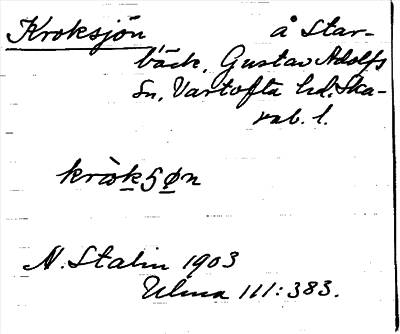 Kroksjön å Star-
bäck, Gustav Adolfs
Sn, Vartofta hd. Ska-
rab. l.
kròkʂøn
N. Stalin 1903
Ulma 111:383.